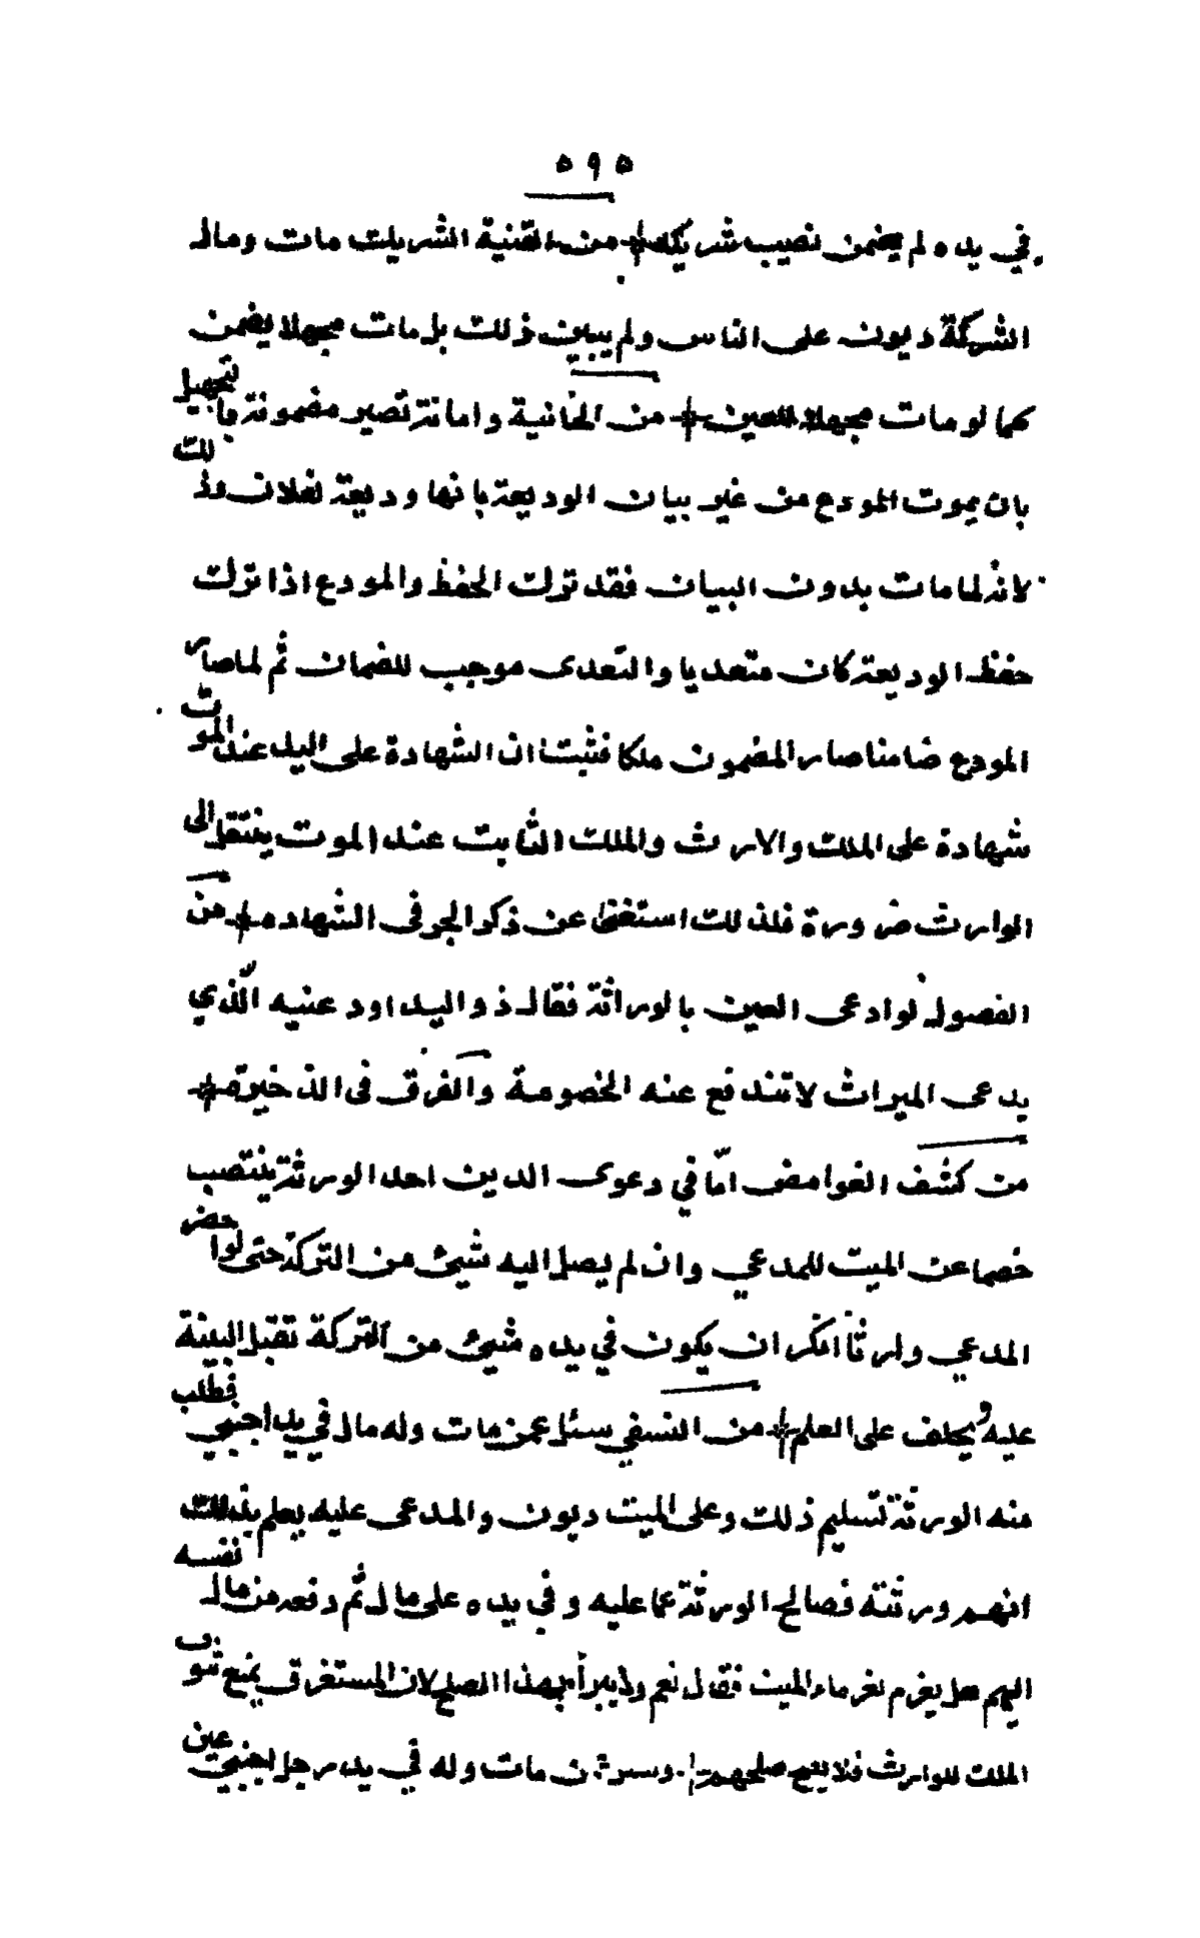 ٥٩٥
في يده لم يضمن نصيب شريكه من القنية الشريك مات ومال
الشركة ديون على الناس ولم يبين ذلك بل مات مجهلا يضمن
كما لو مات مجهلا للعين من الخانية وامانة تصير مضمونة بالتجهيل
بان يموت المودع من غير بيان الوديعة بانها وديعة لفلان وذلك
لانه لما مات بدون البيان فقد ترك الحفظ والمودع اذا ترك
حفظ الوديعة كان متعديا والتعدى موجب للضمان ثم لما صار
المودع ضامنا صار المضمون ملكا فثبت ان الشهادة على اليد عند الموت
شهادة على الملك والارث والملك الثابت عند الموت ينتقل الى
الوارث ضرورة فلذلك استغنى عن ذكر الجر فى الشهادة من
الفصول لو ادعى العين بالوراثة فقال ذو اليد اودعنيه الّذي
يدعى الميراث لا تندفع عنه الخصومة والفرق فى الذخيرة
من كشف الغوامض امّا في دعوى الدين احد الورثة ينتصب
خصما عن الميت للمدعي وان لم يصل اليه شيئ من التركة حتى لو احضر
المدعي وارثا انكر ان يكون في يده شيئ من التركة تقبل البينة
عليه ويحلف على العلم من النسفي سئل عمن مات وله مال في يد اجنبي فطلب
منه الورثة تسليم ذلك وعلى الميت ديون والمدعى عليه يعلم بذلك
انهم ورثته فصالح الورثة عما عليه وفي يده على مال ثم دفعه من مال نفسه
اليهم هل يغرم لغرماء الميت فقال نعم ولا يبرأ بهذا الصلح لان المستغرق يمنع ثبوت
الملك للوارث فلا يصح صلحهم مات وله في يد رجل اجنبي عين